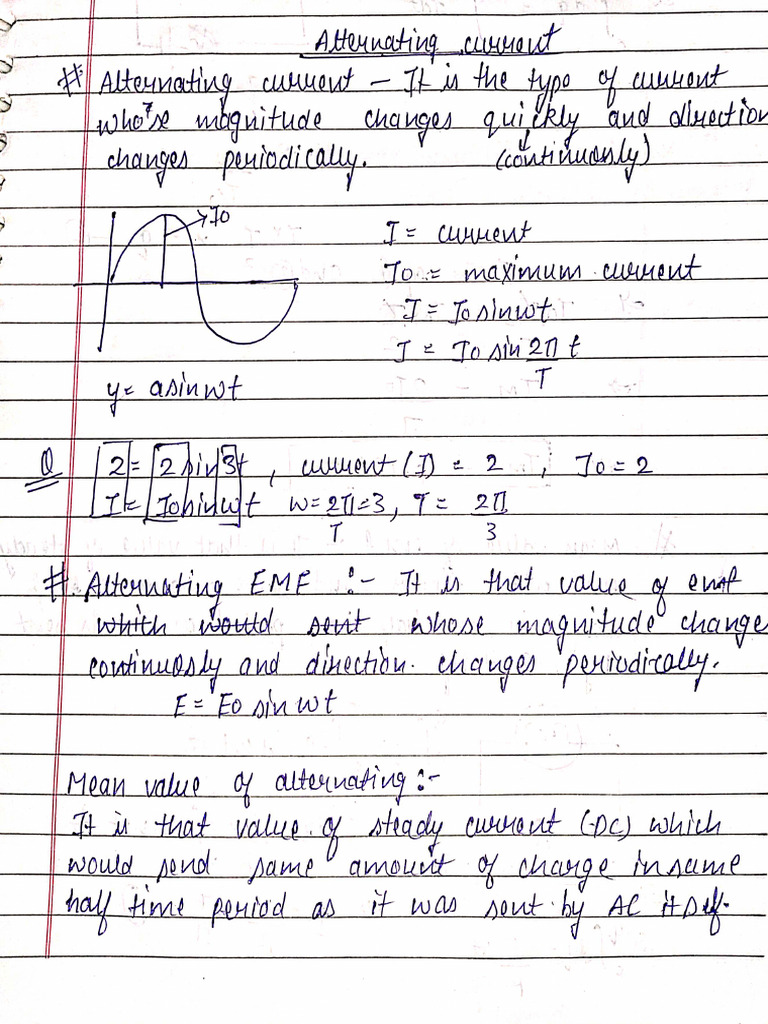 Alternating current
# Alternating current - It is the type of current
whose magnitude changes quickly and direction
changes periodically. (continuously)
I0
I = current
I0 = maximum current
I = I0 sinwt
I = I0 sin 2π/T t
y = a sin wt
Q 2 = 2 sin 3t , current (I) = 2 , I0 = 2
I = I0 sin wt w = 2π/T = 3, T = 2π/3
# Alternating EMF :- It is that value of emf
which would sent whose magnitude change
continuously and direction. changes periodically.
E = E0 sin wt
Mean value of alternating :-
It is that value of steady current (DC) which
would send same amount of charge in same
half time period as it was sent by AC itself.